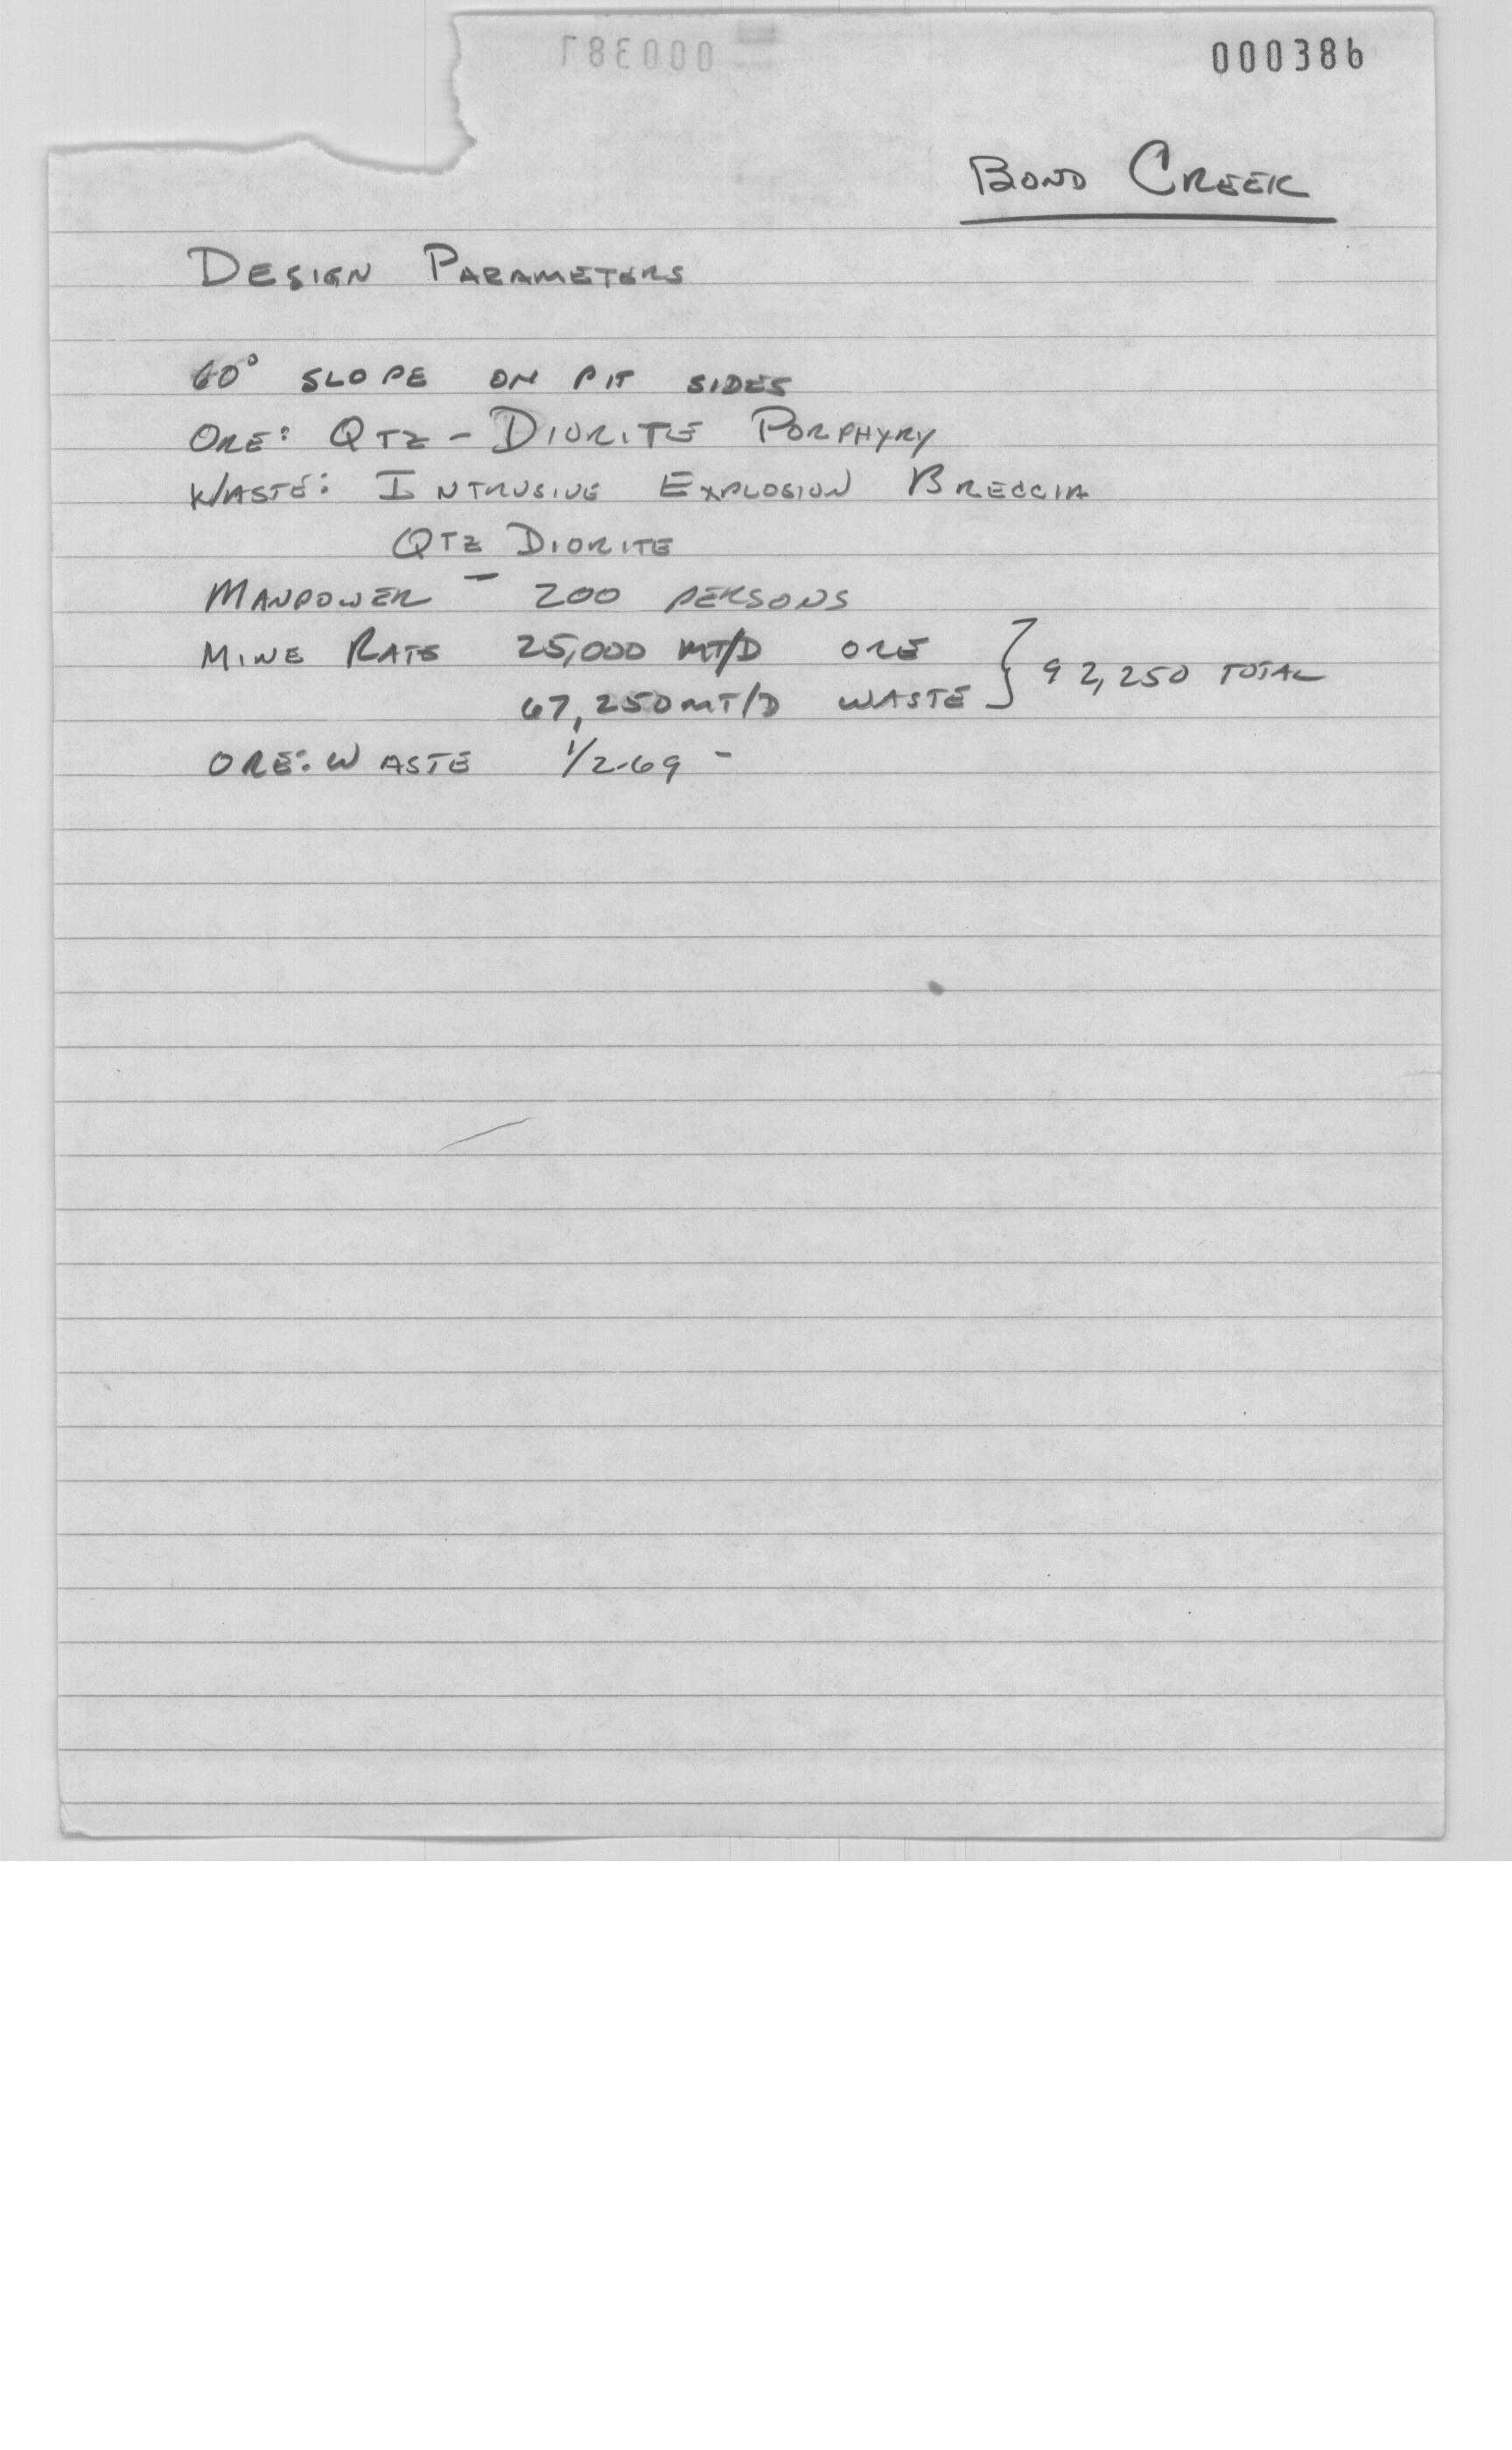 000387
000386
BOND CREEK
DESIGN PARAMETERS
60° SLOPE ON PIT SIDES
ORE: QTZ - DIORITE PORPHYRY
WASTE: INTRUSIVE EXPLOSION BRECCIA
QTZ DIORITE
MANPOWER - 200 PERSONS
MINE RATE 25,000 MT/D ORE
67,250 MT/D WASTE } 92,250 TOTAL
ORE:WASTE 1/2.69 -